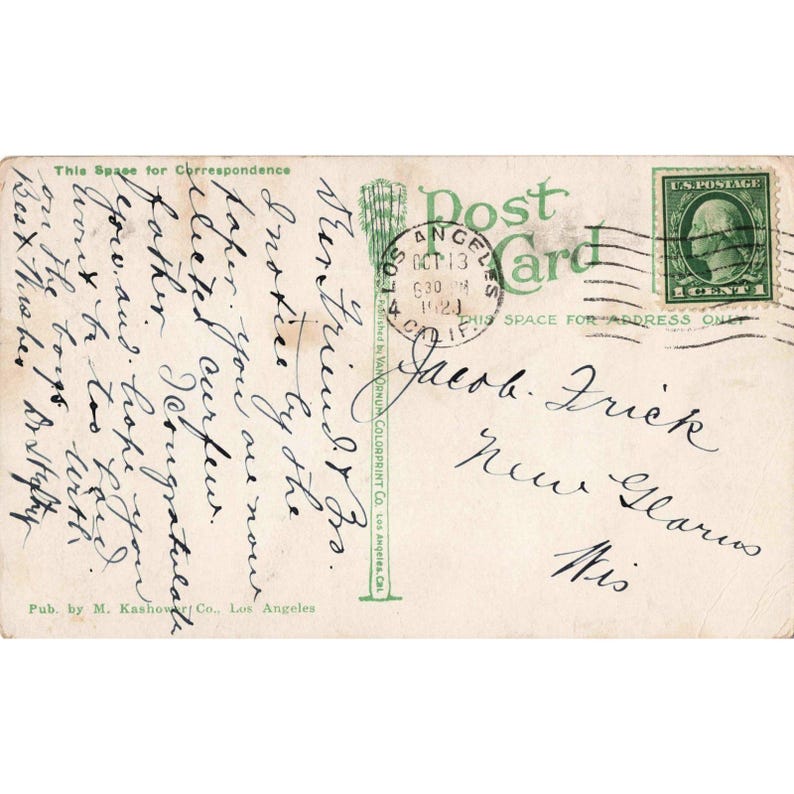 This Space for Correspondence
Post
Card
U.S. POSTAGE
1 CENT 1
LOS ANGELES
OCT 13
6 30 PM
192
4 CALIF.
THIS SPACE FOR ADDRESS ONLY
Dear Friend & Bro.
I notice by the
paper you are now
elected curfew.
father I congratulate
you and hope you
wont be too hard
on the boys. with
Best wishes
Jacob. Frick
New Glarus
Wis
Published by VAN ORNUM COLORPRINT CO. LOS ANGELES, CAL.
Pub. by M. Kashower Co., Los Angeles